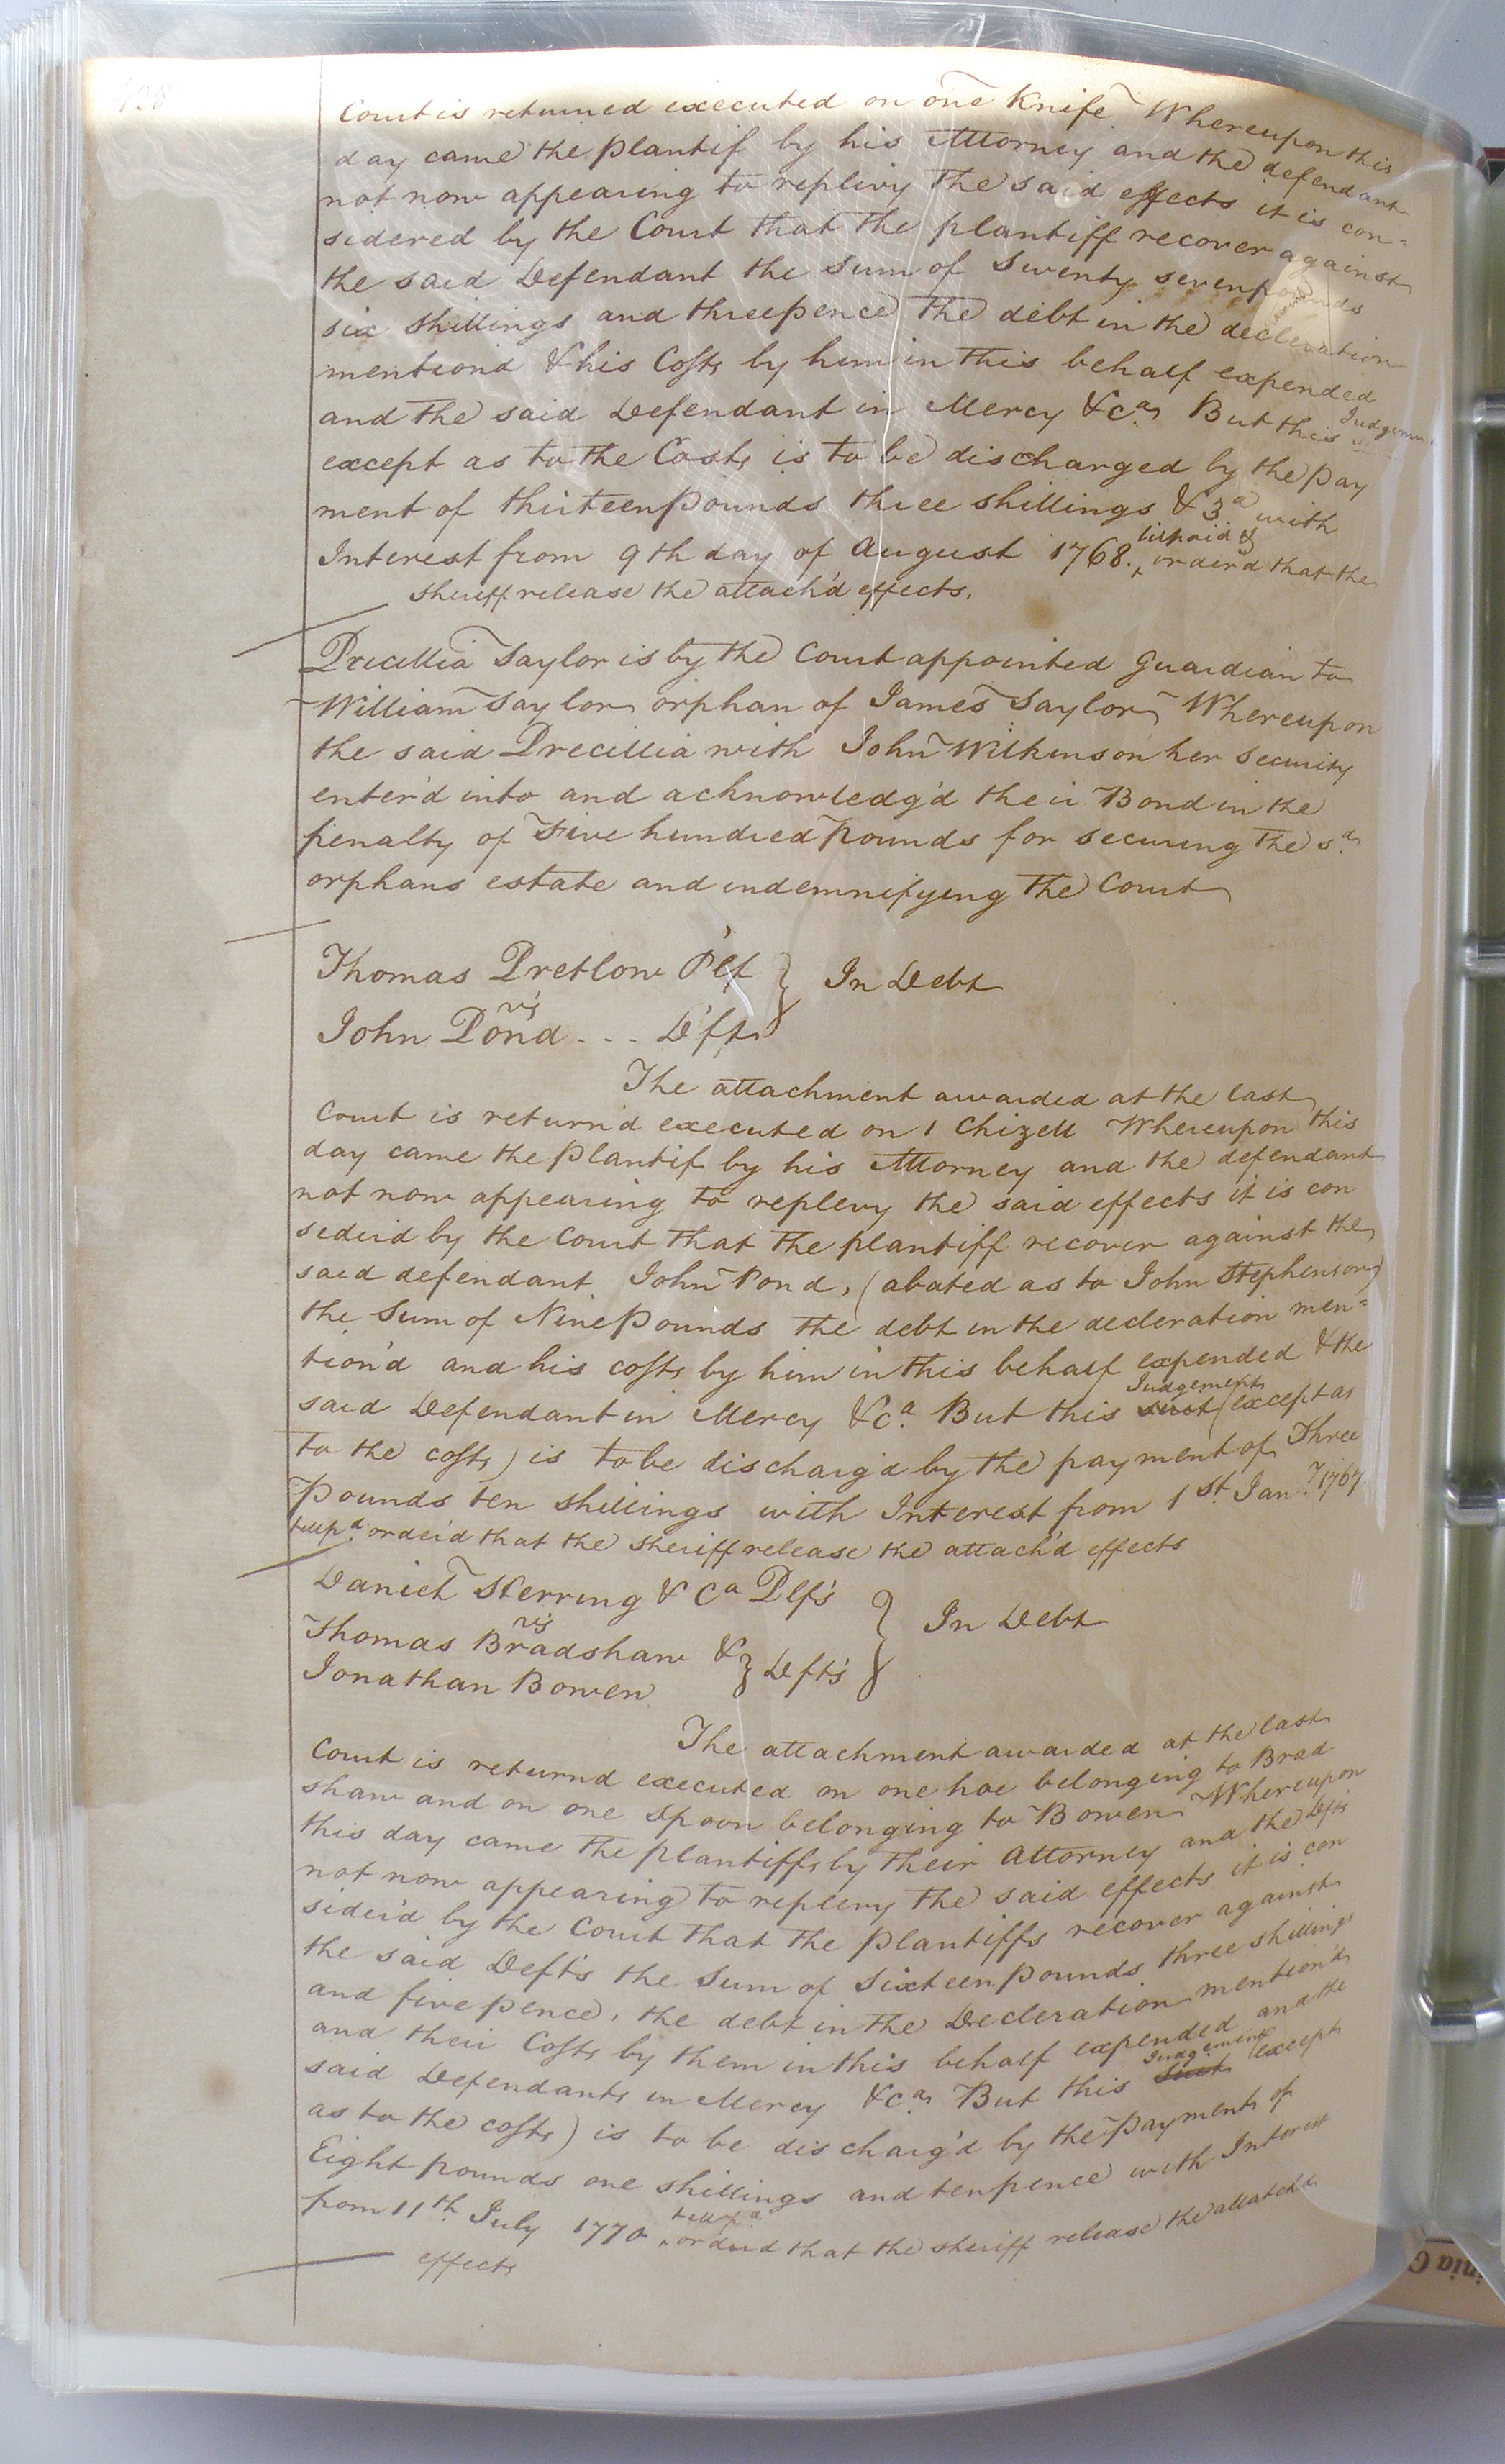 128
Court is returned executed on one Knife Whereupon this
day came the plantif by his Attorney and the defendant
not now appearing to replivy the said effects it is con=
sidered by the Court that the plantiff recover against
the said Defendant the Sum of Twenty seven pounds
six shillings and threepence the debt in the decleration
mentiond & his Costs by him in this behalf expended
and the said Defendant in Mercy &ca But this Judgement
except as to the Costs is to be discharged by the pay
ment of thirteen pounds three shillings & 3d with
Interest from 9th day of August 1768. tilpaid & orderd that the
sheriff release the attach'd effects.
Precillia Taylor is by the Court appointed Guardian to
William Taylor orphan of James Taylor Whereupon
the said Precillia with John Wilkinson her security
enter'd into and acknowledg'd their Bond in the
penalty of Five hundred Pounds for securing the sd
orphans estate and indemnifying the Court
Thomas Pretlow Plf } In Debt
vs
John Pond . . . Dft
The attachment awarded at the last
Court is return'd executed on 1 Chizell Whereupon this
day came the plantif by his Attorney and the defendant
not now appearing to replevy the said effects it is con
siderd by the Court that the plantiff recover against the
said defendant John Pond, (abated as to John Stephenson)
the Sum of Nine Pounds the debt in the decleration men=
tion'd and his costs by him in this behalf expended & the
said Defendant in Mercy &ca But this suit Judgement (except as
to the costs) is to be discharg'd by the payment of Three
Pounds ten shillings with Interest from 1st Jany 1767.
tillpd order'd that the sheriff release the attach'd effects
Daniel Herring & Ca Plfs } In Debt
vs
Thomas Bradshaw & } Dfts
Jonathan Bowen
The attachment awarded at the last
Court is returnd executed on one hoe belonging to Brad
shaw and on one spoon belonging to Bowen Whereupon
this day came the plantiffs by their Attorney and the Dfts
not now appearing to replevy the said effects it is con
sider'd by the Court that the plantiffs recover against
the said Defts the Sum of Sixteen pounds three shillings
and five pence, the debt in the Decleration mention'd
and their Costs by them in this behalf expended and the
said Defendants in Mercy &ca But this suit Judgement (except
as to the costs) is to be discharg'd by the Payment of
Eight pounds one shillings and tenpence with Interest
from 11th July 1770 tillpd orderd that the sheriff release the attatchd
effects